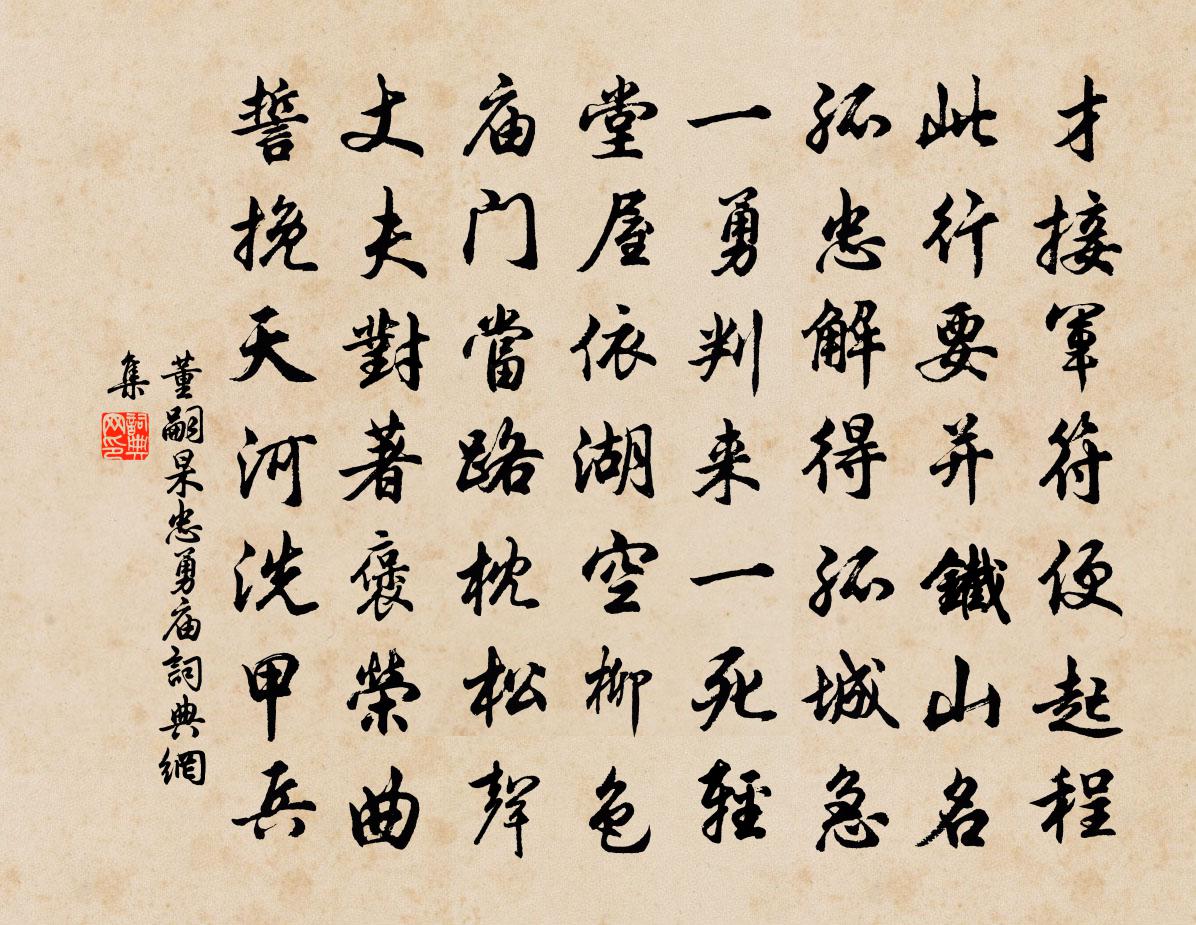 才接軍符便起程
此行要并鐵山名
孤忠解得孤城急
一勇判来一死輕
堂屋依湖空柳色
庙门當路枕松聲
丈夫對著褒榮曲
誓挽天河洗甲兵
董嗣杲忠勇庙詞典網
集
詞典
网印